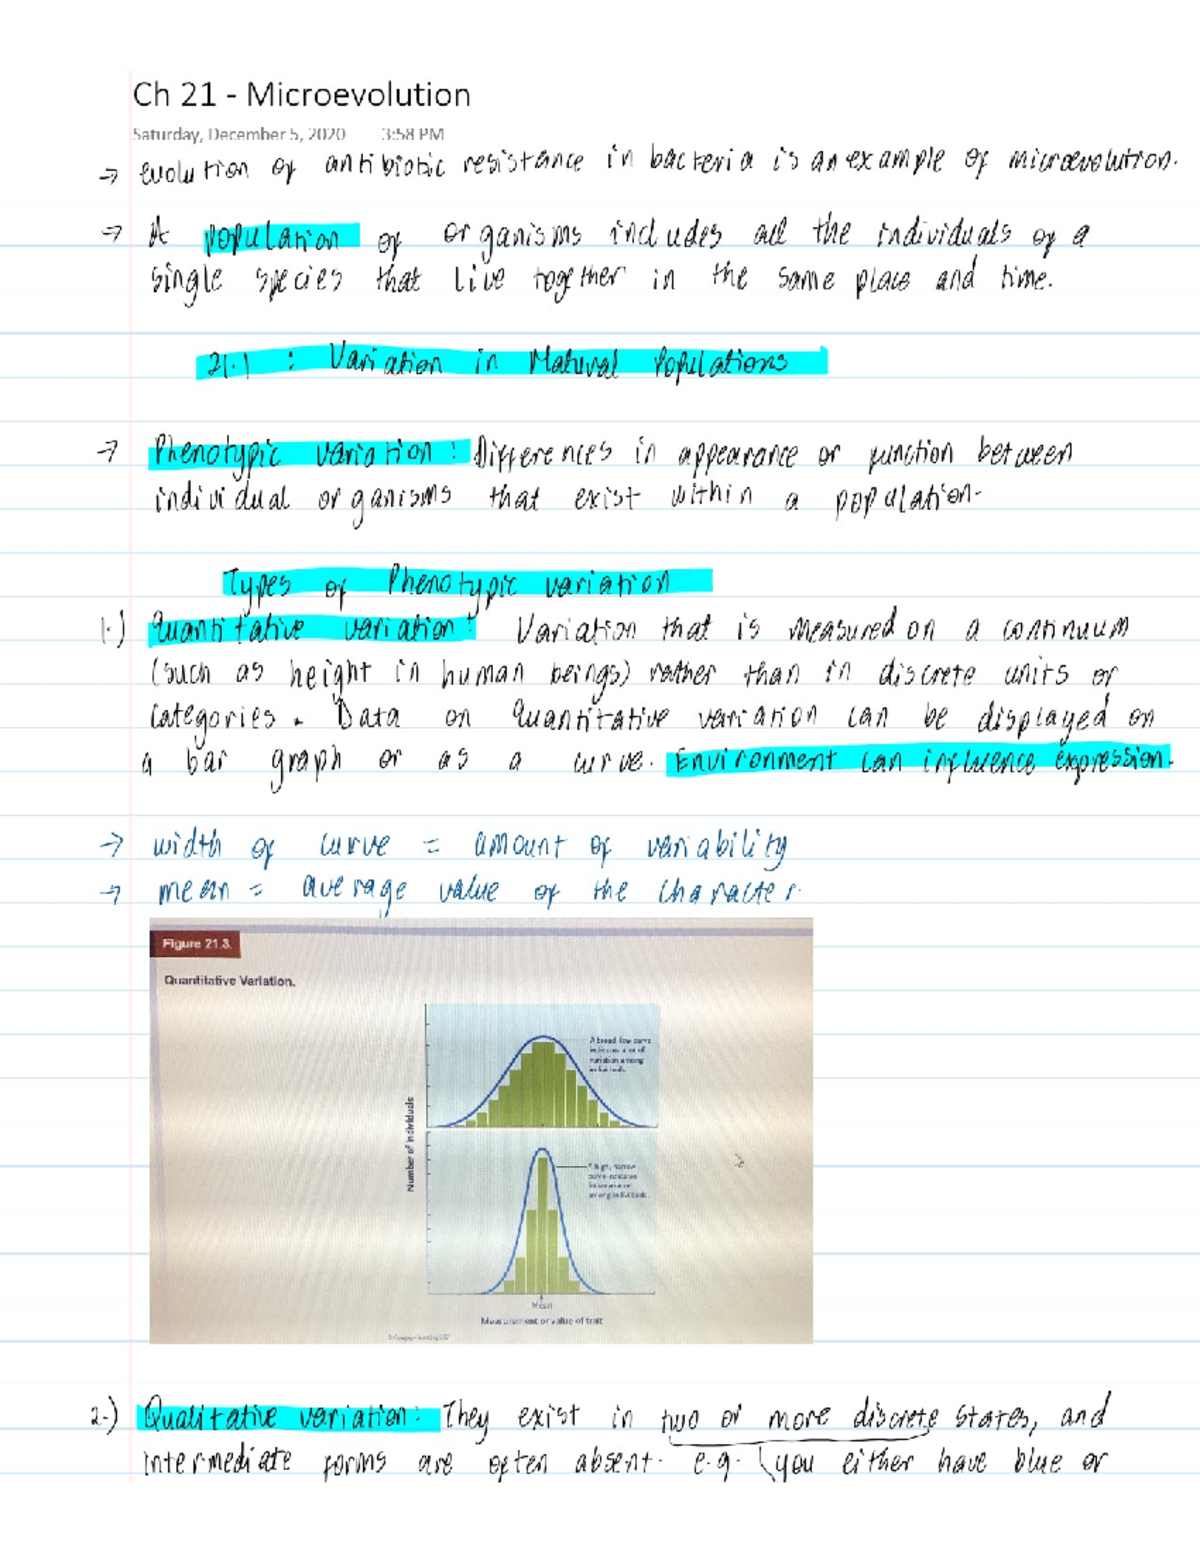 Ch 21 - Microevolution
Saturday, December 5, 2020 3:58 PM
→ evolution of antibiotic resistance in bacteria is an example of microevolution.
→ A population of organisms includes all the individuals of a
single species that live together in the same place and time.
21.1 : Variation in Natural Populations
→ Phenotypic variation : Differences in appearance or function between
individual organisms that exist within a population.
Types of Phenotypic variation
1.) Quantitative variation : Variation that is measured on a continuum
(such as height in human beings) rather than in discrete units or
categories. Data on quantitative variation can be displayed on
a bar graph or as a curve. Environment can influence expression.
→ width of curve = amount of variability
→ mean = average value of the character.
Figure 21.3.
Quantitative Variation.
A broad, low curve
indicates a lot of
variation among
individuals.
Number of individuals
A high, narrow
curve indicates
little variation
among individuals.
Mean
Measurement or value of trait
2.) Qualitative variation : They exist in two or more discrete states, and
intermediate forms are often absent. e.g. you either have blue or